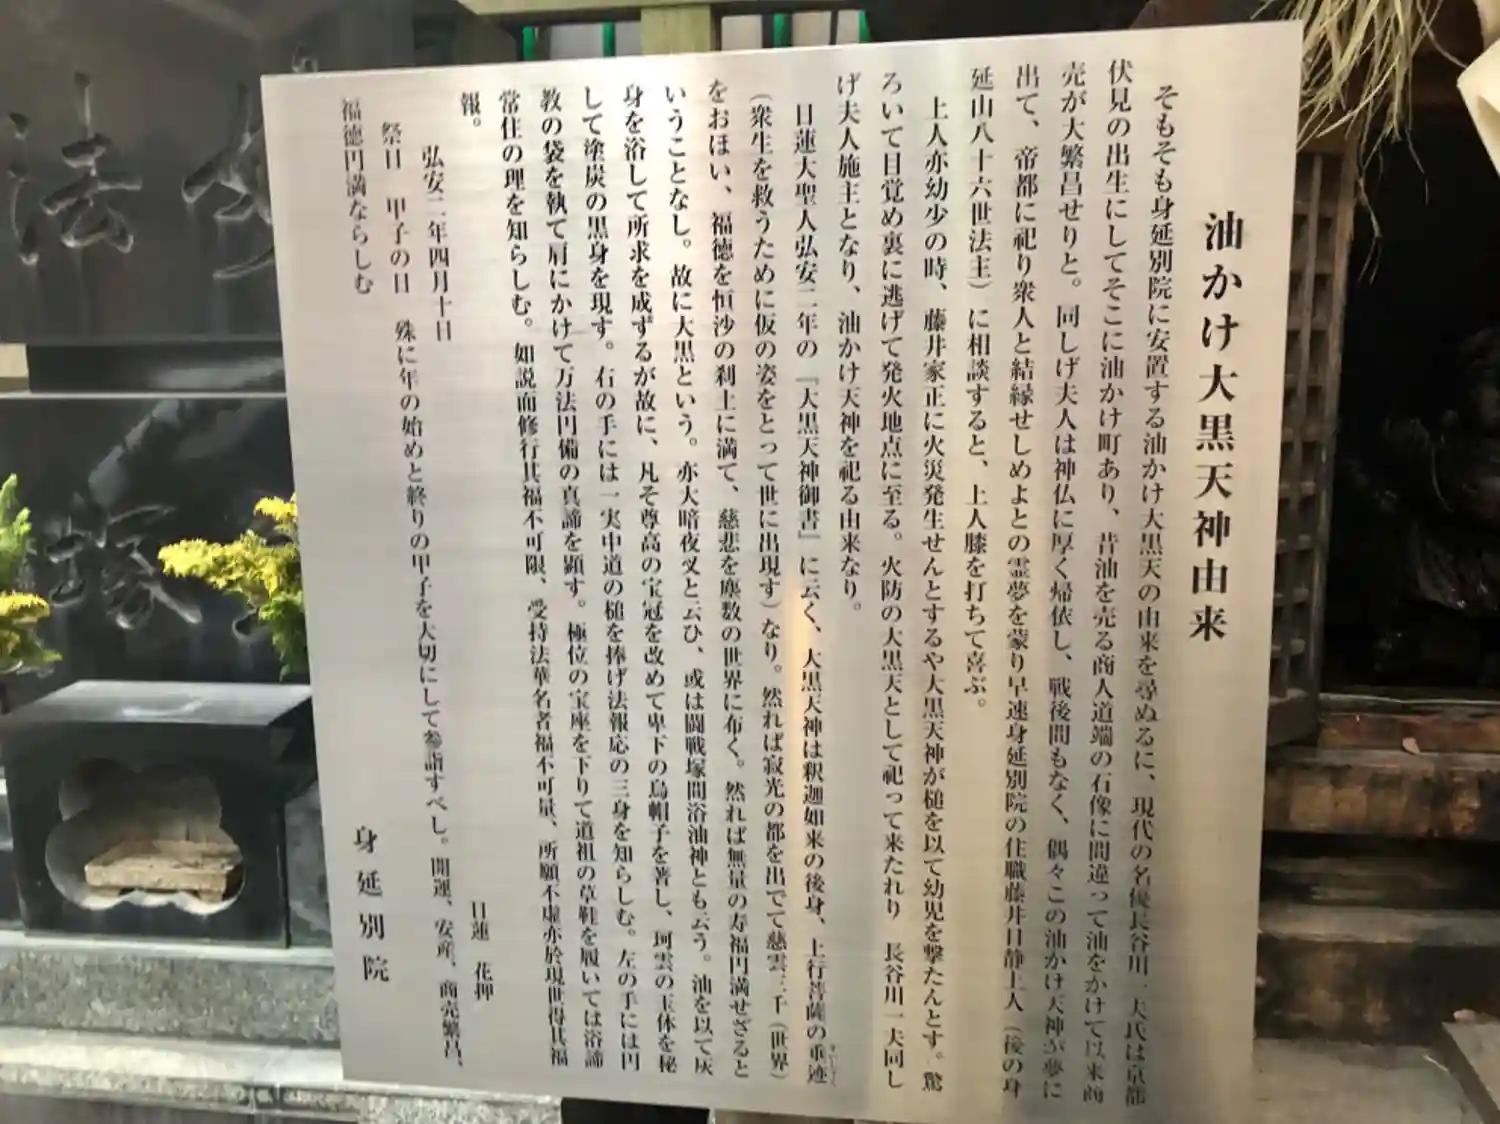 油かけ大黒天神由来
そもそも身延別院に安置する油かけ大黒天の由来を尋ぬるに、現代の名優長谷川一夫氏は京都
伏見の出生にしてそこに油かけ町あり、昔油を売る商人道端の石像に間違って油をかけて以来商
売が大繁昌せりと。同しげ夫人は神仏に厚く帰依し、戦後間もなく、偶々この油かけ天神が夢に
出て、帝都に祀り衆人と結縁せしめよとの霊夢を蒙り早速身延別院の住職藤井日静上人（後の身
延山八十六世法主）に相談すると、上人膝を打ちて喜ぶ。
上人亦幼少の時、藤井家正に火災発生せんとするや大黒天神が槌を以て幼児を撃たんとす。驚
ろいて目覚め裏に逃げて発火地点に至る。火防の大黒天として祀って来たれり　長谷川一夫同し
げ夫人施主となり、油かけ天神を祀る由来なり。
日蓮大聖人弘安二年の『大黒天神御書』に云く、大黒天神は釈迦如来の後身、上行菩薩の垂迹
（衆生を救うために仮の姿をとって世に出現す）なり。然れば寂光の都を出でて慈雲三千（世界）
をおほい、福徳を恒沙の刹土に満て、慈悲を塵数の世界に布く。然れば無量の寿福円満せざると
いうことなし。故に大黒という。亦大暗夜叉と云ひ、或は闘戦塚間浴油神とも云う。油を以て灰
身を浴して所求を成ずるが故に、凡そ尊高の宝冠を改めて卑下の烏帽子を著し、珂雲の玉体を秘
して塗炭の黒身を現す。右の手には一実中道の槌を捧げ法報応の三身を知らしむ。左の手には円
教の袋を執て肩にかけて万法円備の真諦を顕す。極位の宝座を下りて道祖の草鞋を履いては浴諦
常住の理を知らしむ。如説而修行其福不可限、受持法華名者福不可量、所願不虚亦於現世得其福
報。
日蓮　花押
弘安二年四月十日
祭日　甲子の日　殊に年の始めと終りの甲子を大切にして参詣すべし。開運、安産、商売繁昌、
福徳円満ならしむ
身延別院